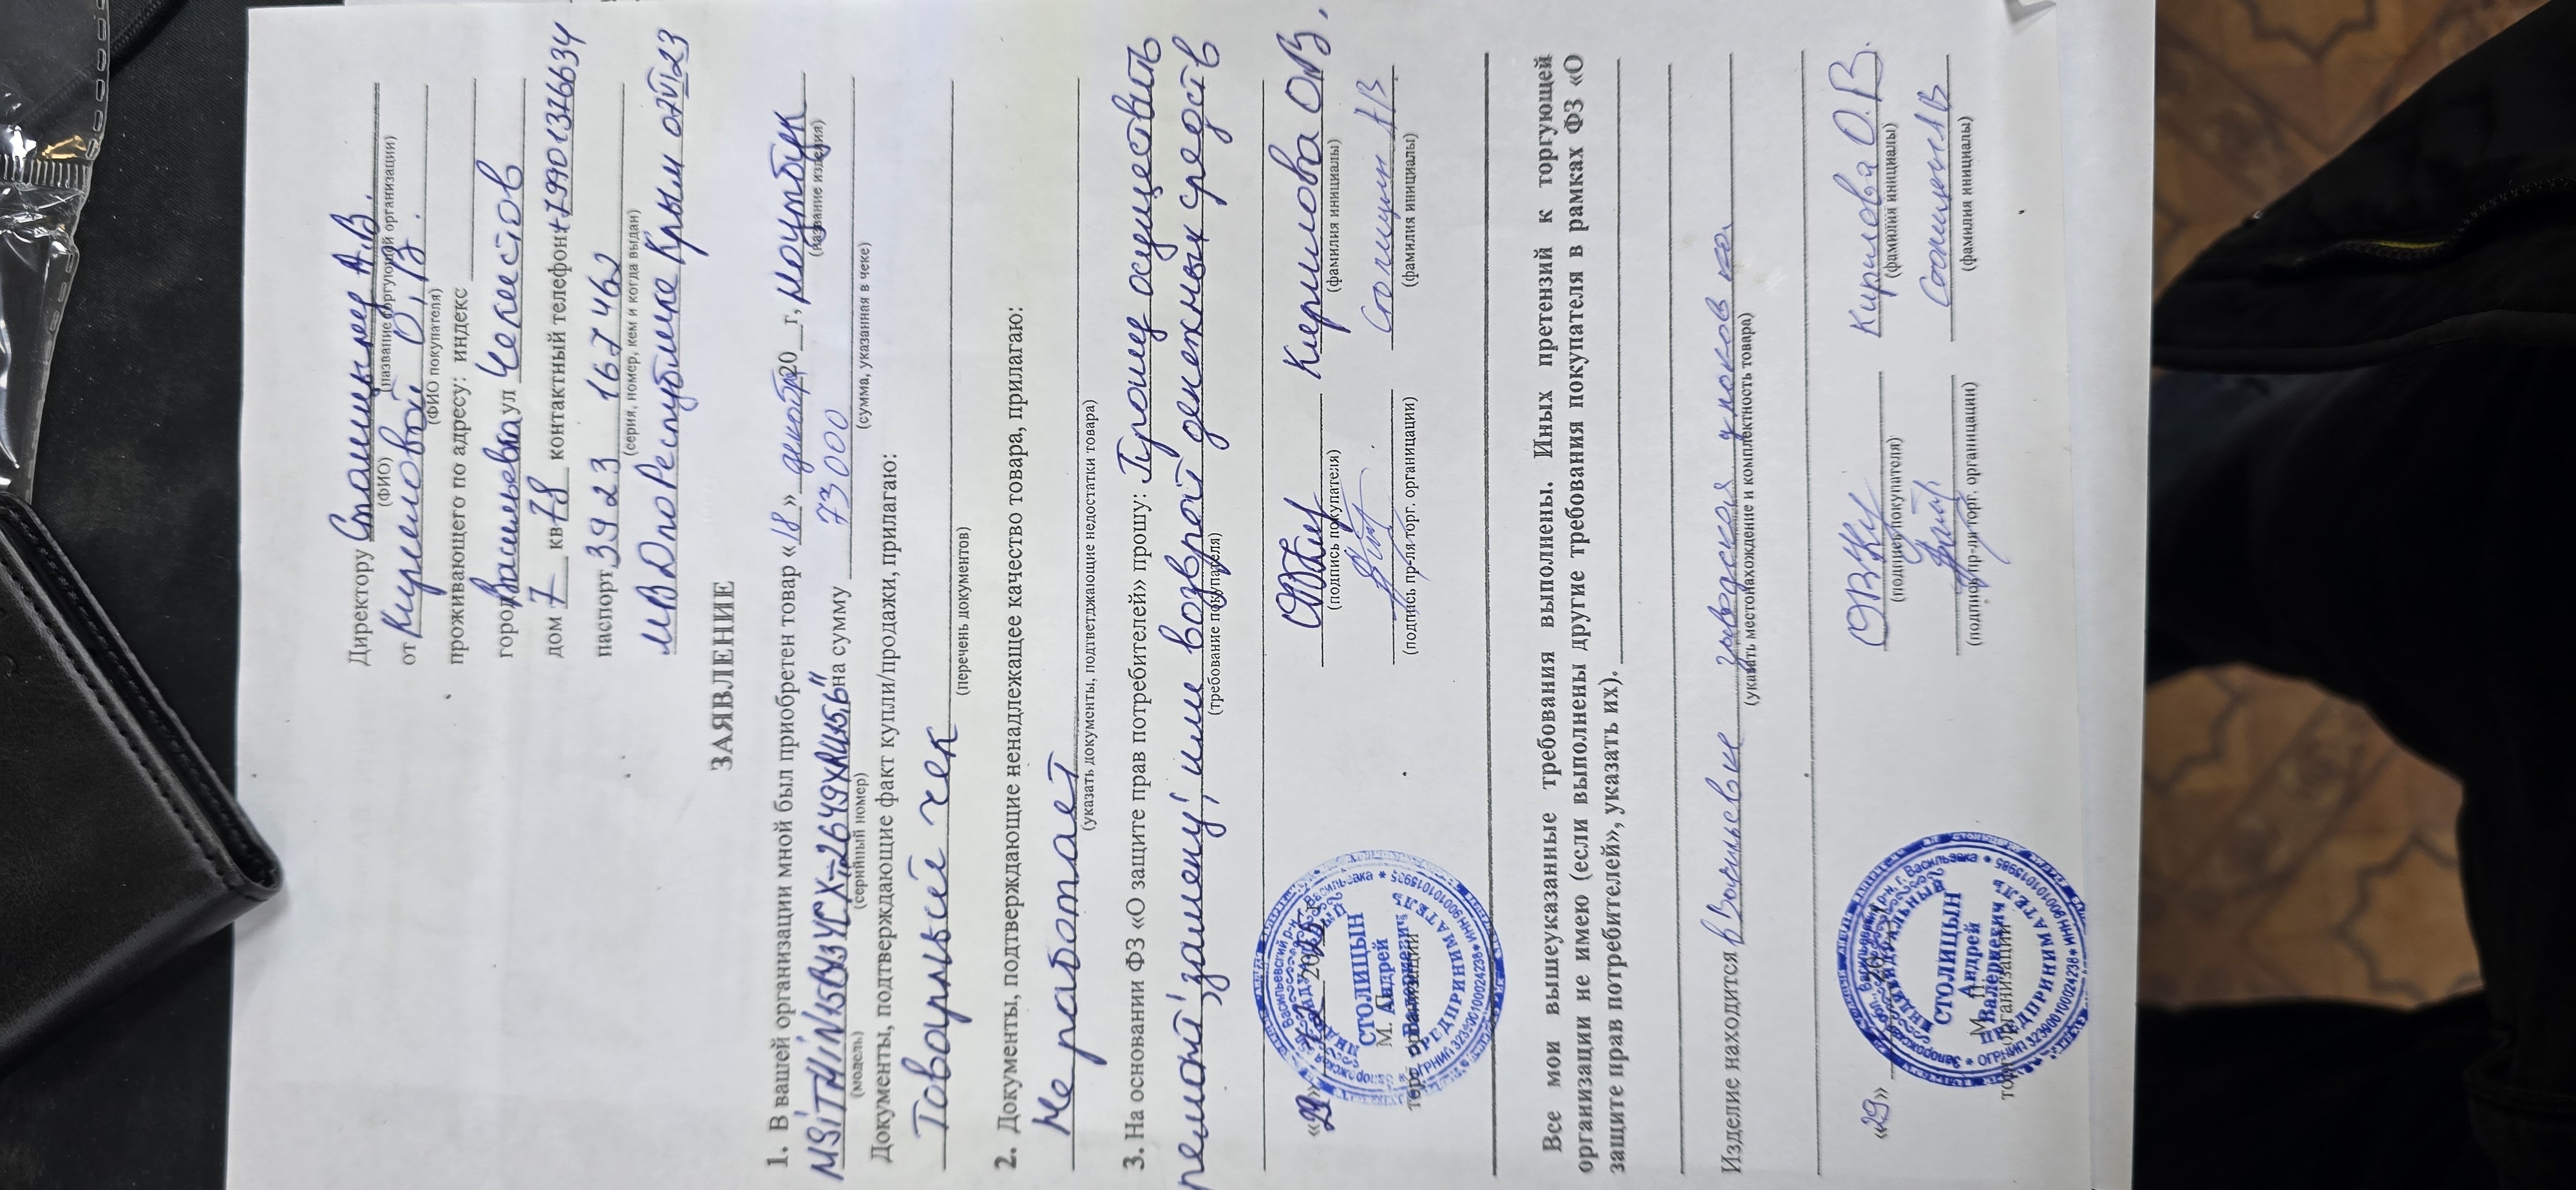 Директору Столицину А.В.
(ФИО) (название торгующей организации)
от Кириловой О.В.
(ФИО покупателя)
проживающего по адресу: индекс
город Васильевка ул Чекистов
дом 7 кв 78 контактный телефон +79901376634
паспорт 3923 167462
(серия, номер, кем и когда выдан)
МВД по Республике Крым 07.VI.23
ЗАЯВЛЕНИЕ
1. В вашей организации мной был приобретен товар «18» декабр 20 г, ноутбук
(название изделия)
MSI THIN 15 на сумму 73000
(модель) (серийный номер) (сумма, указанная в чеке)
Документы, подтверждающие факт купли/продажи, прилагаю:
Товарный чек
(перечень документов)
2. Документы, подтверждающие ненадлежащее качество товара, прилагаю:
Не работает
(указать документы, подтверждающие недостатки товара)
3. На основании ФЗ «О защите прав потребителей» прошу: Прошу осуществить
ремонт, замену, или возврат денежных средств
(требование покупателя)
«29» Кирилова О.В.
(подпись покупателя) (фамилия инициалы)
М.П. Столицин А В
торг. организации (подпись пр-ля торг. организации) (фамилия инициалы)
ИНДИВИДУАЛЬНЫЙ
СТОЛИЦЫН
Андрей
Валериевич
ПРЕДПРИНИМАТЕЛЬ
Запорожская обл., Васильевский р-н, г. Васильевка * ИНН 900101015985 * ОГРНИП 323900100024238
Все мои вышеуказанные требования выполнены. Иных претензий к торгующей
организации не имею (если выполнены другие требования покупателя в рамках ФЗ «О
защите прав потребителей», указать их).
Изделие находится в Васильевке заводская упаковка
(указать местонахождение и комплектность товара)
«29» Кирилова О.В.
(подпись покупателя) (фамилия инициалы)
М.П. Столицин А В
торг. организации (подпись пр-ля торг. организации) (фамилия инициалы)
ИНДИВИДУАЛЬНЫЙ
СТОЛИЦЫН
Андрей
Валериевич
ПРЕДПРИНИМАТЕЛЬ
Запорожская обл., Васильевский р-н, г. Васильевка * ИНН 900101015985 * ОГРНИП 323900100024238